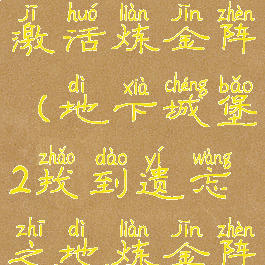 jī huó liàn jīn zhèn
激活炼金阵
dì xià chéng bǎo
(地下城堡
zhǎo dào yí wàng
2找到遗忘
zhī dì liàn jīn zhèn
之地炼金阵